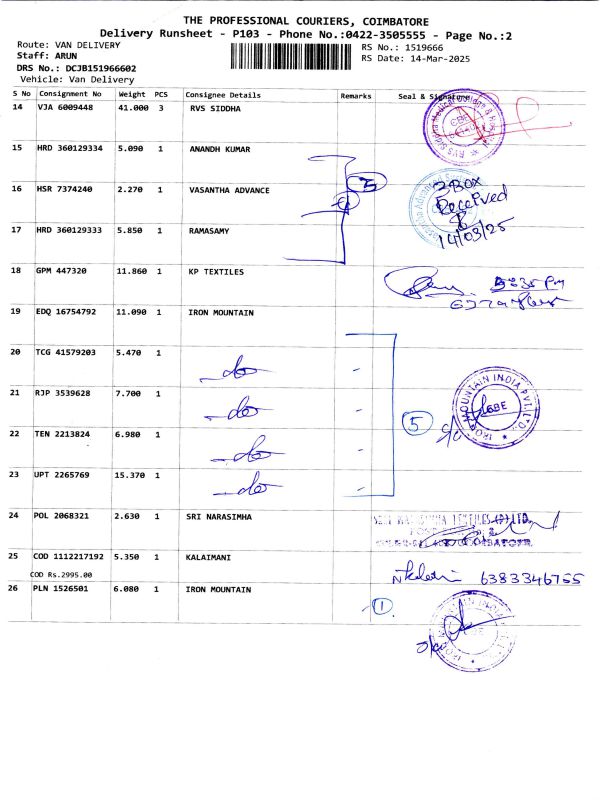 THE PROFESSIONAL COURIERS, COIMBATORE
Delivery Runsheet - P103 - Phone No.:0422-3505555 - Page No.:2
Route: VAN DELIVERY
RS No.: 1519666
Staff: ARUN
RS Date: 14-Mar-2025
DRS No.: DCJB151966602
Vehicle: Van Delivery
S No Consignment No Weight PCS Consignee Details Remarks Seal & Signature
14 VJA 6009448 41.000 3 RVS SIDDHA
15 HRD 360129334 5.090 1 ANANDH KUMAR
16 HSR 7374240 2.270 1 VASANTHA ADVANCE
3 Box
Received
14/03/25
17 HRD 360129333 5.850 1 RAMASAMY
18 GPM 447320 11.860 1 KP TEXTILES
19 EDQ 16754792 11.090 1 IRON MOUNTAIN
20 TCG 41579203 5.470 1 -do-
21 RJP 3539628 7.700 1 -do-
5
IRON MOUNTAIN INDIA PVT. LTD.
CBE
22 TEN 2213824 6.980 1 -do-
23 UPT 2265769 15.370 1 -do-
24 POL 2068321 2.630 1 SRI NARASIMHA
25 COD 1112217192 5.350 1 KALAIMANI
6383346755
COD Rs.2995.00
26 PLN 1526501 6.080 1 IRON MOUNTAIN
1